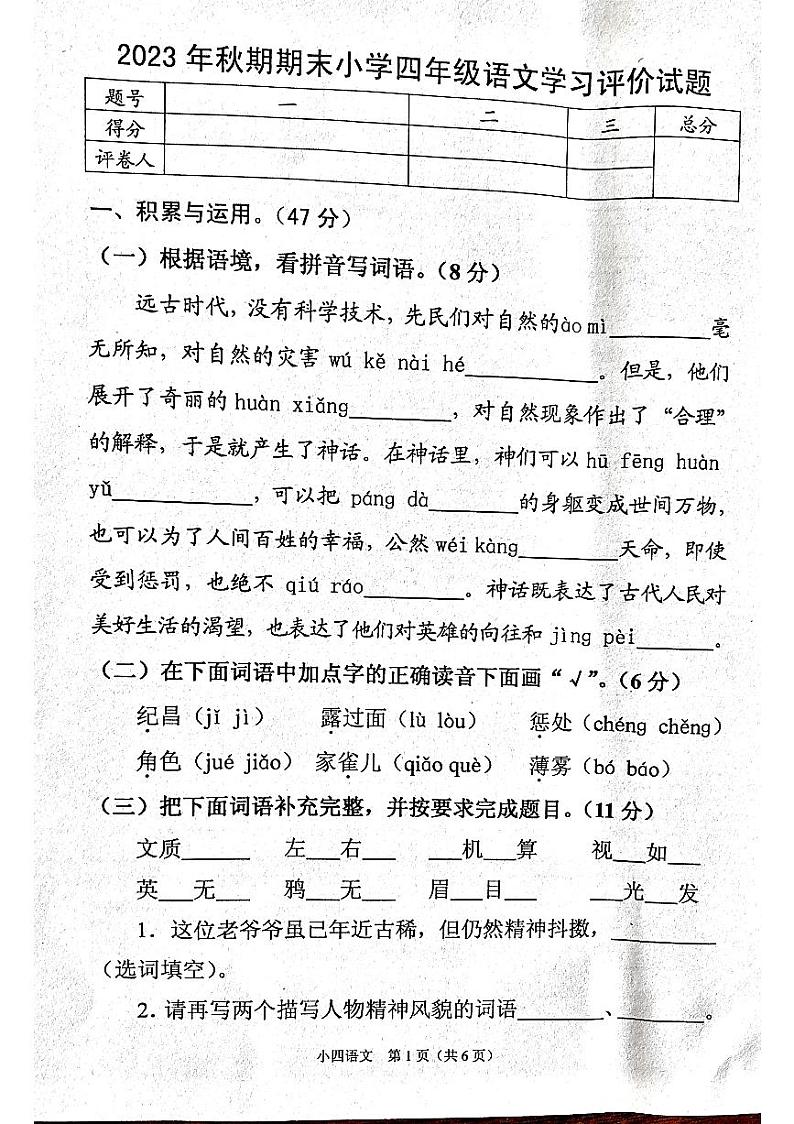 2023年秋期期末小学四年级语文学习评价试题
题号 一 二 三 总分
得分
评卷人
一、积累与运用。（47分）
（一）根据语境，看拼音写词语。（8分）
远古时代，没有科学技术，先民们对自然的ào mì_________毫
无所知，对自然的灾害 wú kě nài hé____________。但是，他们
展开了奇丽的 huàn xiǎng_________，对自然现象作出了“合理”
的解释，于是就产生了神话。在神话里，神们可以 hū fēng huàn
yǔ____________，可以把 páng dà________的身躯变成世间万物，
也可以为了人间百姓的幸福，公然 wéi kàng_________天命，即使
受到惩罚，也绝不 qiú ráo_________。神话既表达了古代人民对
美好生活的渴望，也表达了他们对英雄的向往和 jìng pèi_______。
（二）在下面词语中加点字的正确读音下面画“√”。（6分）
纪昌（jǐ jì） 露过面（lù lòu） 惩处（chéng chěng）
角色（jué jiǎo） 家雀儿（qiǎo què） 薄雾（bó báo）
（三）把下面词语补充完整，并按要求完成题目。（11分）
文质______ 左___右___ ___机___算 视___如___
英___无___ 鸦___无___ 眉___目___ ___光___发
1．这位老爷爷虽已年近古稀，但仍然精神抖擞，_________
（选词填空）。
2．请再写两个描写人物精神风貌的词语________、________。
小四语文 第1页（共6页）